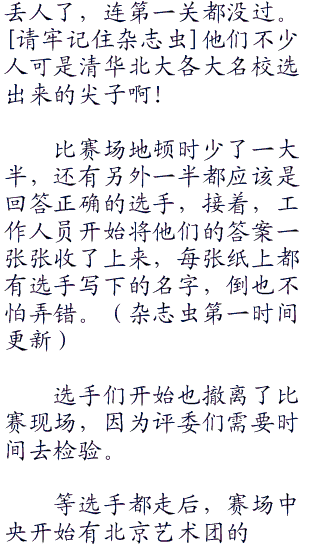 丢人了，连第一关都没过。
[请牢记住杂志虫]他们不少
人可是清华北大各大名校选
出来的尖子啊！
比赛场地顿时少了一大
半，还有另外一半都应该是
回答正确的选手，接着，工
作人员开始将他们的答案一
张张收了上来，每张纸上都
有选手写下的名字，倒也不
怕弄错。（杂志虫第一时间
更新）
选手们开始也撤离了比
赛现场，因为评委们需要时
间去检验。
等选手都走后，赛场中
央开始有北京艺术团的